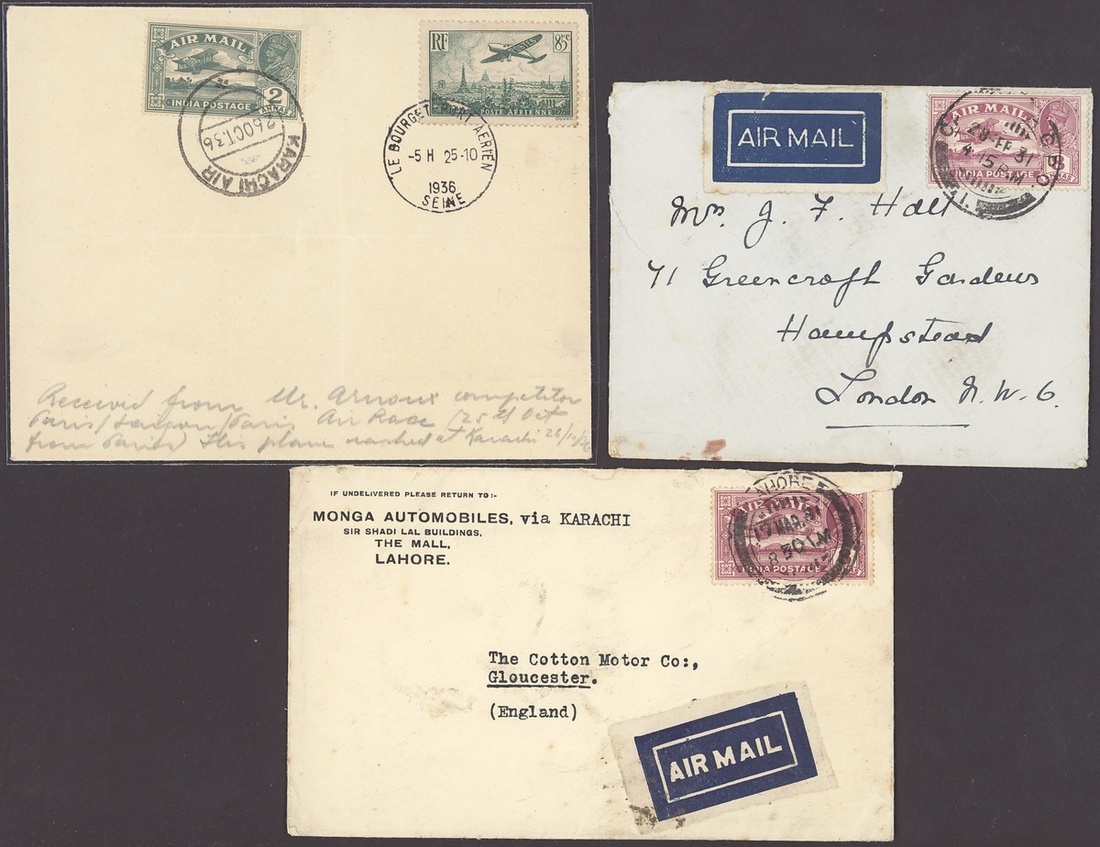 AIR MAIL
INDIA POSTAGE 2 ANNAS
26 OCT. 36
KARACHI AIR
RF 85c
POSTES
POSTE AÉRIENNE
LE BOURGET-PORT AÉRIEN
-5 H 25-10
1936
SEINE
Received from Mr. Arnoux competitor
Paris/Saigon/Paris Air Race (25th Oct
from Paris) His plane crashed at Karachi 26/10/36
AIR MAIL
AIR MAIL
INDIA POSTAGE
G.P.O.
28 FEB 31
4 15 PM
Mrs J. F. Halt
71 Greencroft Gardens
Hampstead
London N.W.6.
IF UNDELIVERED PLEASE RETURN TO:-
MONGA AUTOMOBILES, via KARACHI
SIR SHADI LAL BUILDINGS,
THE MALL,
LAHORE.
AIR MAIL
INDIA POSTAGE
LAHORE
17 MAR. 31
8 30
The Cotton Motor Co:,
Gloucester.
(England)
AIR MAIL